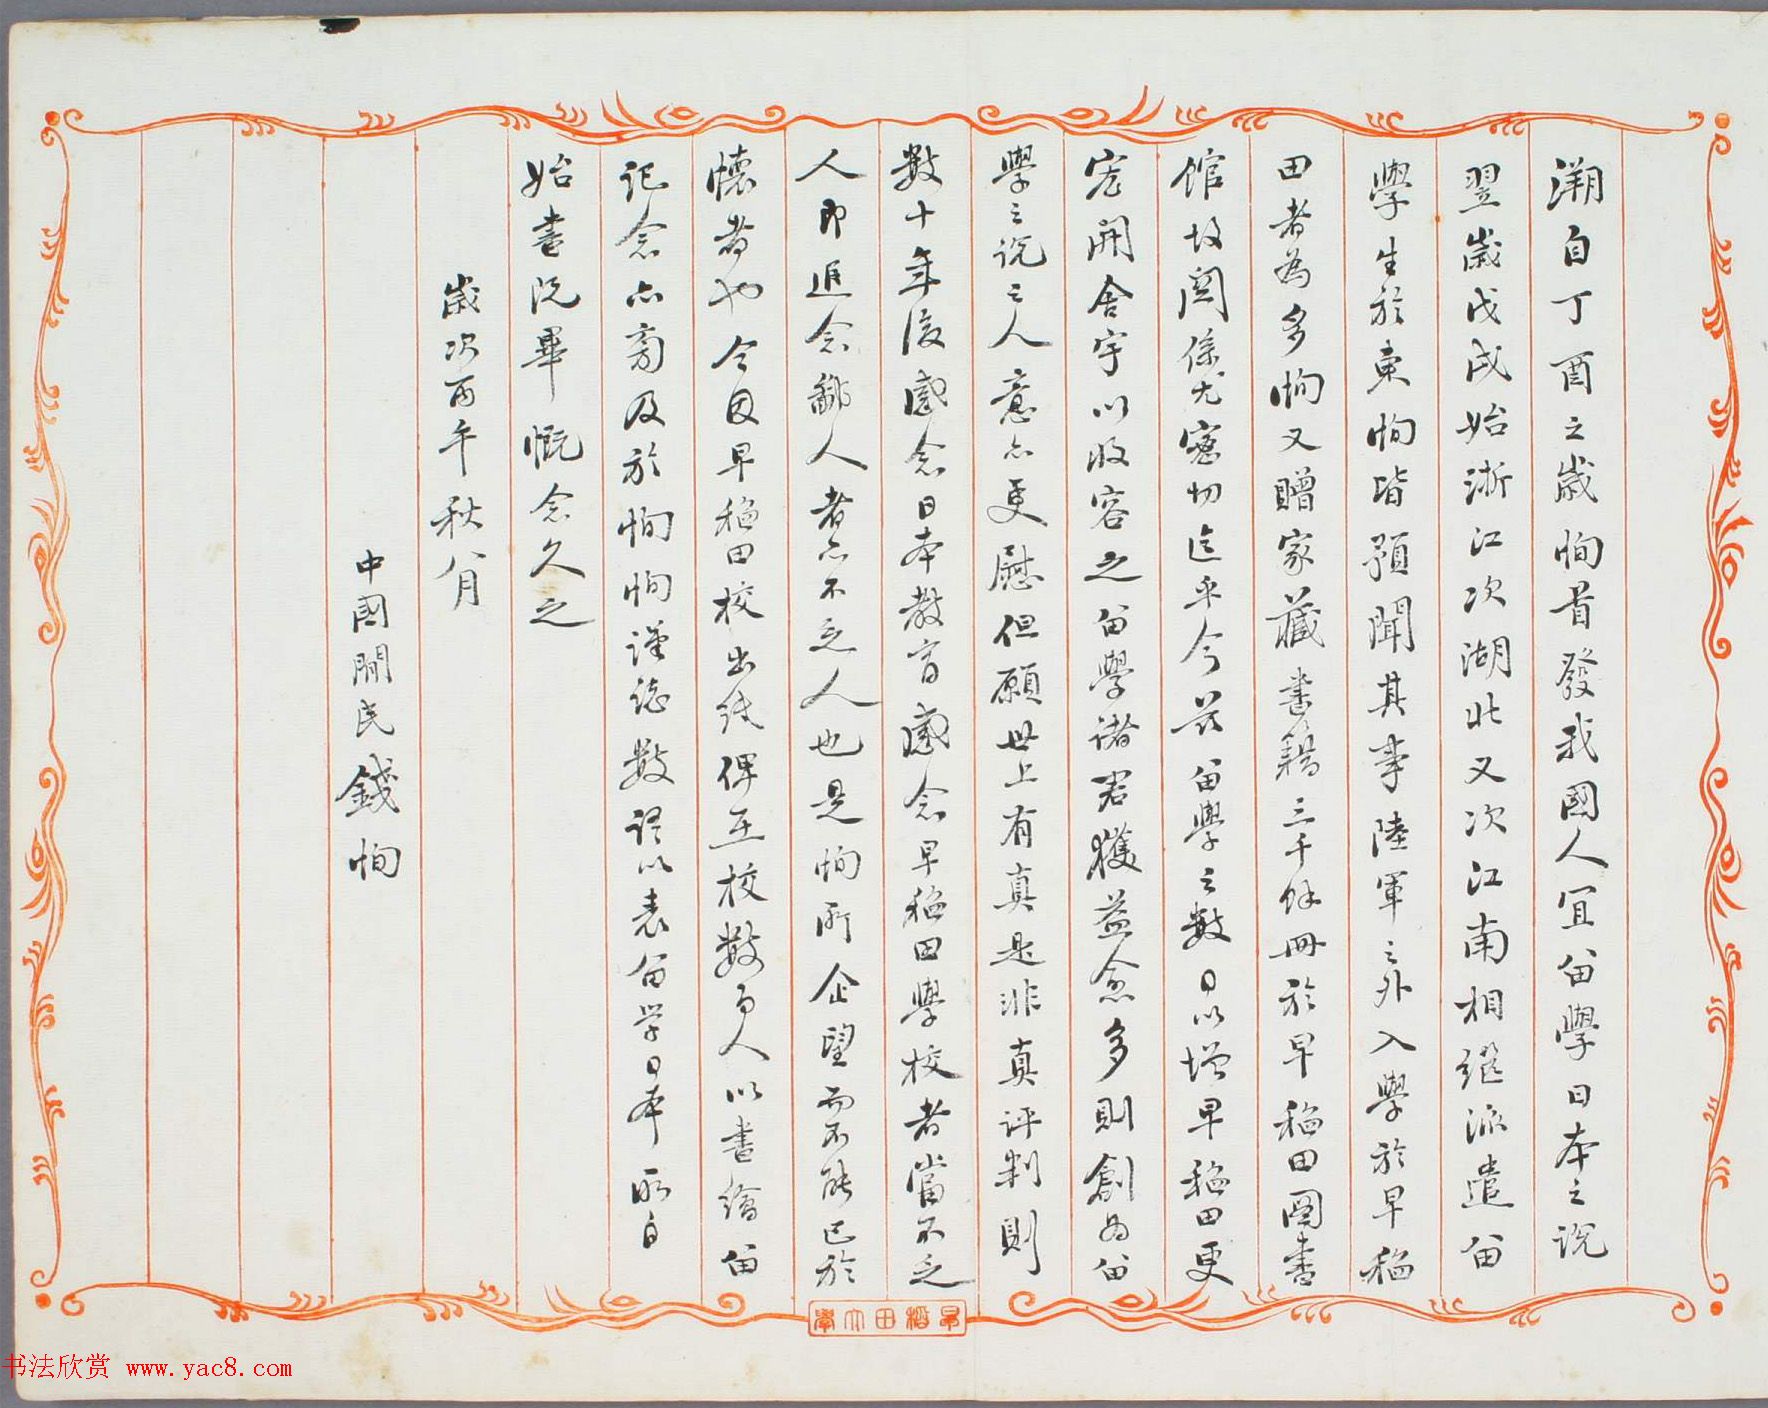 溯自丁酉之歲恂首發我國人宜留學日本之說
翌歲戊戌始浙江次湖北又次江南相繼派遣留
學生於東恂皆預聞其事陸軍之外入學於早稻
田者為多恂又贈家藏書籍三千餘冊於早稻田圖書
館故關係尤密切迄乎今茲留學之數日以增早稻田更
宏開舍宇以收容之留學諸君獲益愈多則創為留
學之說之人意亦更慰但願世上有真是非真評判則
數十年後感念日本教育感念早稻田學校者當不乏
人即追念創人者亦不乏人也是恂所企望而不能已於
懷者也今因早稻田校出紙俾在校數百人以書繪留
記念亦旁及於恂恂謹誌數語以表留學日本所自
始書既畢慨念久之
歲次丙午秋八月
中國開民錢恂
早稻田大學
书法欣赏 www.yac8.com